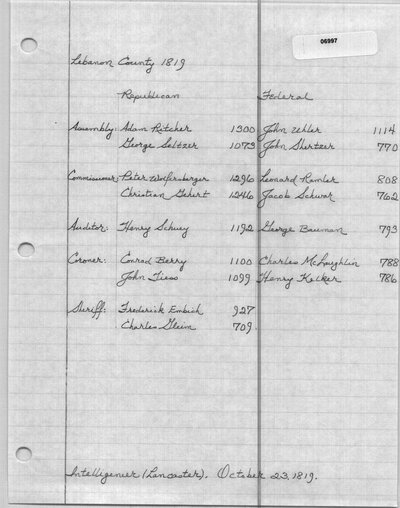 06997
Lebanon County 1819
Republican Federal
Assembly: Adam Ritcher 1300 John Uhler 1114
George Seltzer 1073 John Shertzer 770
Commissioner: Peter Wolfersberger 1296 Leonard Ramler 808
Christian Gehert 1246 Jacob Schwar 762
Auditor: Henry Schuey 1192 George Bauman 793
Coroner: Conrad Berry 1100 Charles McLoughlin 788
John Tice 1099 Henry Kelker 786
Sheriff: Frederick Embich 927
Charles Gleim 709
Intelligencer (Lancaster). October 23, 1819.